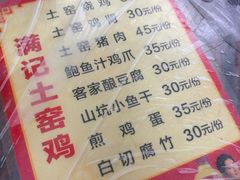 满记土窑鸡
土窑烧鸡
土窑鸡 30元/份
土窑猪肉 45元/份
鲍鱼汁鸡爪 35元/份
客家酿豆腐 30元/份
山坑小鱼干 30元/份
煎鸡蛋 35元/份
白切腐竹 30元/份